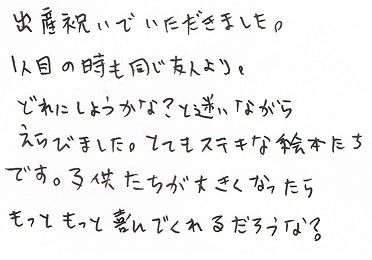 出産祝いでいただきました。
1人目の時も同じ友人より。
どれにしようかな?と迷いながら
えらびました。とてもステキな絵本たち
です。子供たちが大きくなったら
もっともっと喜んでくれるだろうな?